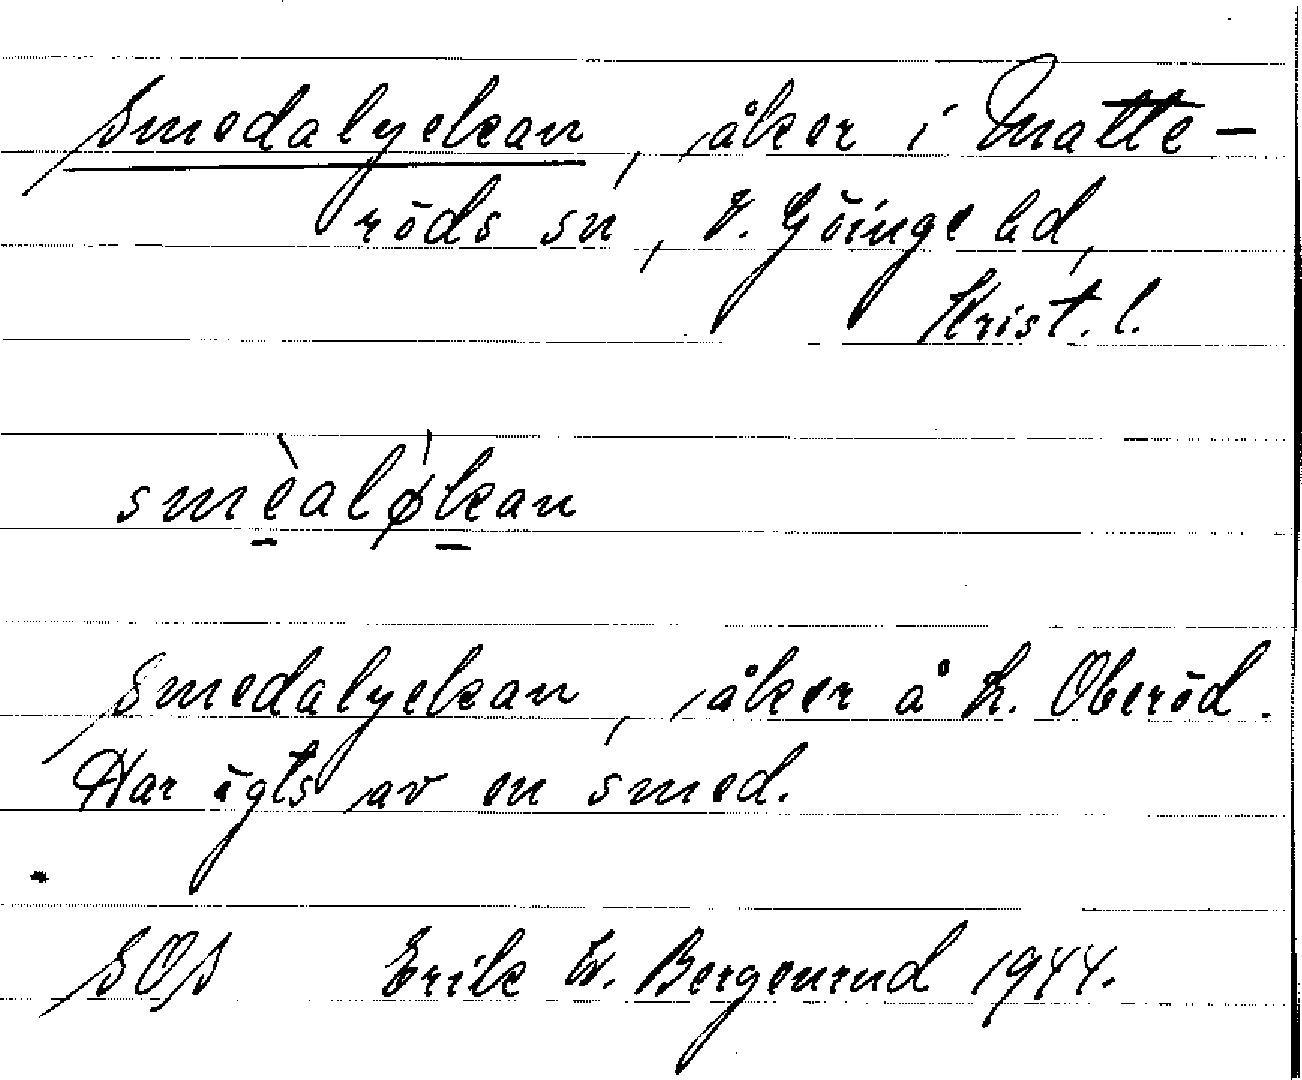 Smedalyckan, åker i Matte-
röds sn, V. Göinge hd,
Krist. l.
smèaløkan
Smedalyckan, åker å h. Oberöd.
Har ägts av en smed.
SOS Erik W. Bergenrud 1944.